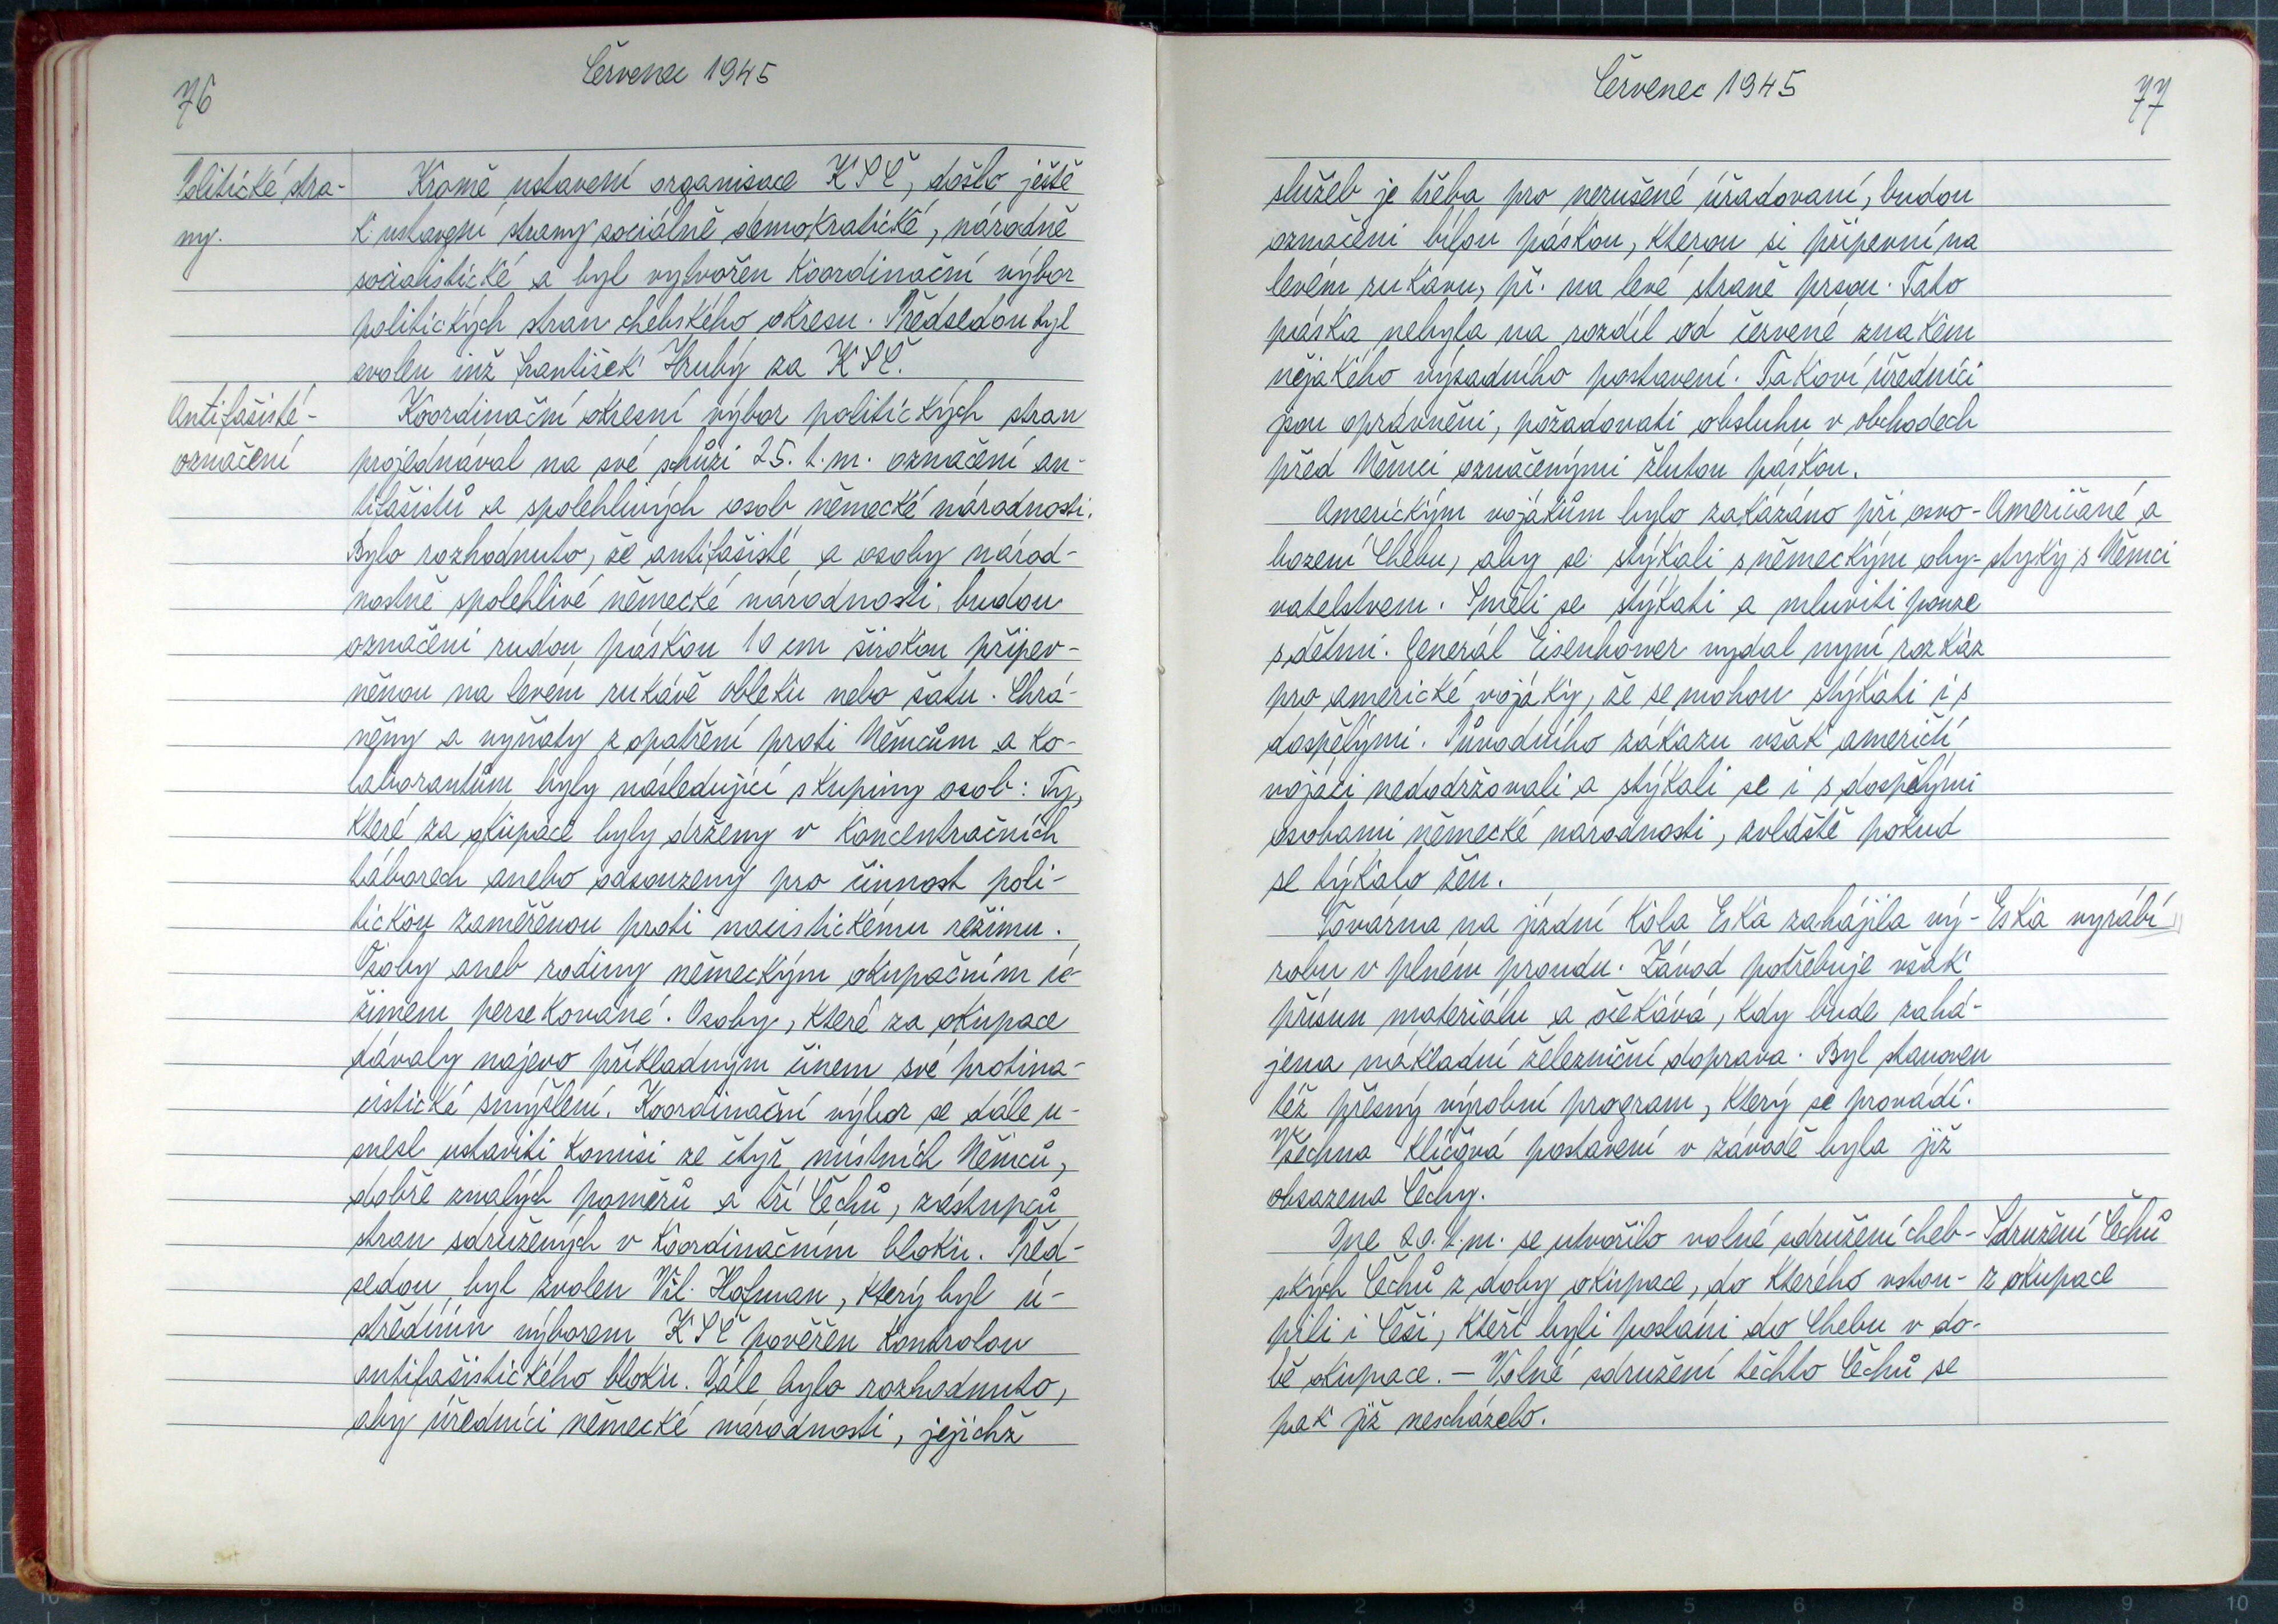 76
Červenec 1945
Politické stra-
ny.
Kromě ustavení organisace KSČ, došlo ještě
k ustavení strany sociálně demokratické, národně
socialistické a byl vytvořen Koordinační výbor
politických stran chebského okresu. Předsedou byl
zvolen inž František Hrubý za KSČ.
Antifašisté-
označení
Koordinační okresní výbor politických stran
projednával na své schůzi 25. t.m. označení an-
tifašistů a spolehlivých osob německé národnosti.
Bylo rozhodnuto, že antifašisté a osoby národ-
nostně spolehlivé německé národnosti, budou
označeni rudou páskou 10 cm širokou připev-
něnou na levém rukávě obleku nebo šatu. Chrá-
něny a vyňaty z opatření proti Němcům a ko-
laborantům byly následující skupiny osob: Ty,
které za okupace byly drženy v koncentračních
táborech anebo odsouzeny pro činnost poli-
tickou zaměřenou proti nacistickému režimu.
Osoby aneb rodiny německým okupačním re-
žimem persekované. Osoby, které za okupace
dávaly najevo příkladným činem své protina-
cistické smýšlení. Koordinační výbor se dále u-
snesl ustaviti komisi ze čtyř místních Němců,
dobře znalých poměrů a tří Čechů, zástupců
stran sdružených v Koordinačním bloku. Před-
sedou byl zvolen Vil. Hofman, který byl ú-
středním výborem KSČ pověřen kontrolou
antifašistického bloku. Dále bylo rozhodnuto,
aby úředníci německé národnosti, jejichž
Červenec 1945
77
služeb je třeba pro nerušené úřadovaní, budou
označeni bílou páskou, kterou si připevní na
levém rukávu, př. na levé straně prsou. Tato
páska nebyla na rozdíl od červené znakem
nějakého výsadního postavení. Takoví úředníci
jsou oprávněni, požadovati obsluhu v obchodech
před Němci označenými žlutou páskou.
Americkým vojákům bylo zakázáno při osvo-
Američané a
bození Chebu, aby se stýkali s německým oby-
styky s Němci
vatelstvem. Směli se stýkati a mluviti pouze
s dětmi. Generál Eisenhower vydal nyní rozkaz
pro americké vojáky, že se mohou stýkati i s
dospělými. Původního zákazu však američtí
vojáci nedodržovali a stýkali se i s dospělými
osobami německé národnosti, zvláště pokud
se týkalo žen.
Továrna na jízdní kola Eska zahájila vý-
Eska vyrábí
robu v plném proudu. Závod potřebuje však
přísun materiálu a očekává, kdy bude zahá-
jena nákladní železniční doprava. Byl stanoven
též přesný výrobní program, který se provádí.
Všechna klíčová postavení v závodě byla již
obsazena Čechy.
Dne 20. t.m. se utvořilo volné sdružení cheb-
Sdružení Čechů
ských Čechů z doby okupace, do kterého vstou-
z okupace
pili i Češi, kteří byli posláni do Chebu v do-
bě okupace. — Volné sdružení těchto Čechů se
pak již nescházelo.